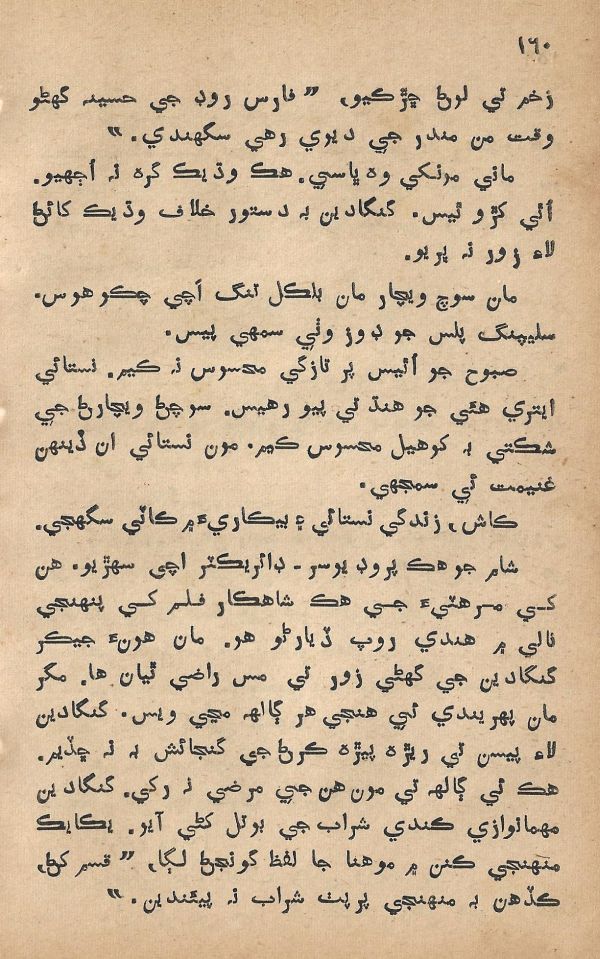 ١٦٠
زخم تي لوڻ ڇڙڪيو، ”فارس روڊ جي حسينہ گھڻو
وقت من مندر جي ديوي رهي سگهندي.“
ماني مرئڪي وھ ڀاسي. هڪ وڌيڪ گرھ نہ اُڇهيو.
اُٿي کڙو ٿيس. گنگادين بہ دستور خلاف وڌيڪ کائڻ
لاءِ زور نہ ڀريو.
مان سوچ ويچار مان بلڪل تنگ اَچي چڪو هوس.
سليپنگ پلس جو ڊوز وٺي سمهي پيس.
صبوح جو اُٿيس پر تازگي محسوس نہ ڪيم. نستائي
ايتري هئي جو هنڌ تي پيو رهيس. سوچڻ ويچارڻ جي
شڪتي بہ کوهيل محسوس ڪيم. مون نستائي ان ڏينهن
غنيمت ئي سمجهي.
ڪاش، زندگي نستائي ۽ بيڪاريءَ ۾ ڪاٽي سگهجي.
شام جو هڪ پروڊيوسر - ڊائريڪٽر اچي سهڙيو. هن
کي مرهٽيءَ جي هڪ شاهڪار فلم کي پنهنجي
نالي ۾ هندي روپ ڏيارڻو هو. مان هونءَ جيڪر
گنگادين جي گهڻي زور تي مس راضي ٿيان ها. مگر
مان پهريندي ئي هنجي هر ڳالھ مڃي ويس. گنگادين
لاءِ پيسن تي ريڙھ پيڙھ ڪرڻ جي گنجائش بہ نہ ڇڏيم.
هڪ ئي ڳالھ تي مون هن جي مرضي نہ رکي. گنگادين
مهمانوازي ڪندي شراب جي بوتل کڻي آيو. يڪايڪ
منهنجي ڪنن ۾ موهنا جا لفظ گونجڻ لڳا، ”قسم کڻ،
ڪڏهن بہ منهنجي پرپٺ شراب نہ پيئندين.“